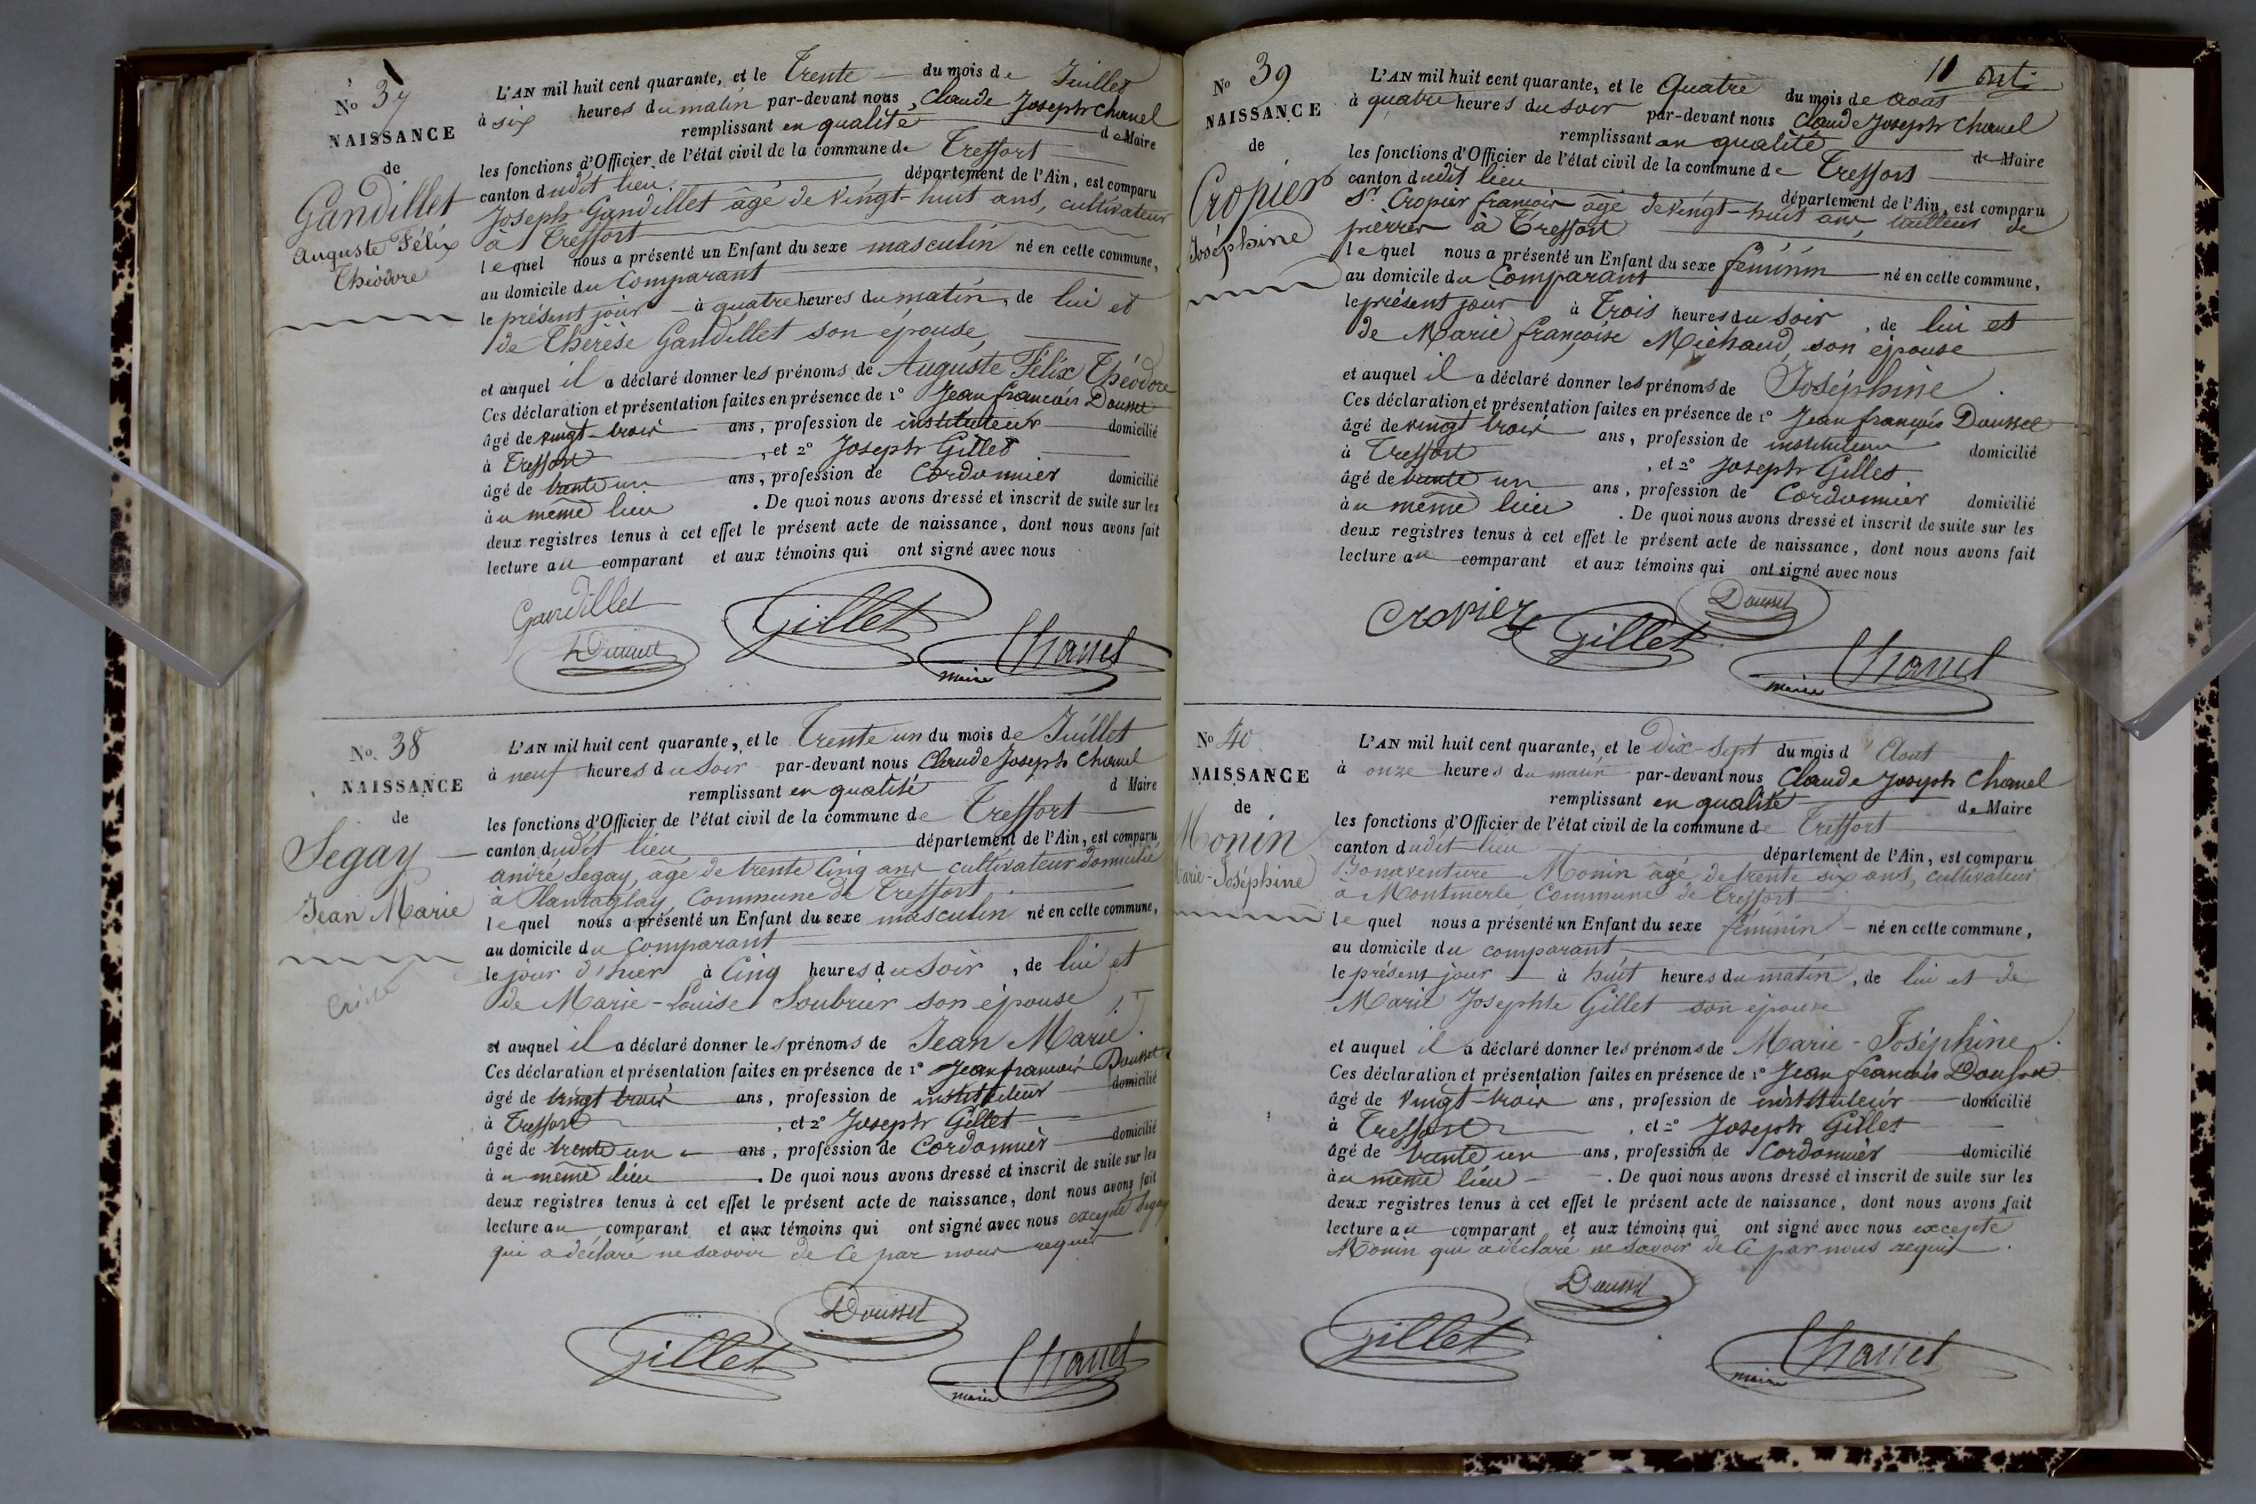 No 37
NAISSANCE
de
Gandillet
Auguste Félix
Théodore
L'AN mil huit cent quarante, et le Trente du mois de Juillet
à six heures du matin par-devant nous, Claude Joseph Chanel
remplissant en qualité de Maire
les fonctions d'Officier de l'état civil de la commune de Treffort
canton dudit lieu département de l'Ain, est comparu
Joseph Gandillet âgé de vingt-huit ans, cultivateur
à Treffort
lequel nous a présenté un Enfant du sexe masculin né en cette commune,
au domicile du Comparant
le présent jour à quatre heures du matin, de lui et
de Thérèse Gandillet son épouse,
et auquel il a déclaré donner les prénoms de Auguste Félix Théodore
Ces déclaration et présentation faites en présence de 1° Jean françois Dousset
âgé de vingt-trois ans, profession de instituteur domicilié
à Treffort, et 2° Joseph Gillet
âgé de trente un ans, profession de Cordonnier domicilié
au même lieu. De quoi nous avons dressé et inscrit de suite sur les
deux registres tenus à cet effet le présent acte de naissance, dont nous avons fait
lecture au comparant et aux témoins qui ont signé avec nous
Gandillet
Dousset
Gillet
Chanel
maire
No 38
NAISSANCE
de
Segay
Jean Marie
L'AN mil huit cent quarante, et le Trente un du mois de Juillet
à neuf heures du soir par-devant nous Claude Joseph Chanel
remplissant en qualité d Maire
les fonctions d'Officier de l'état civil de la commune de Treffort
canton dudit lieu département de l'Ain, est comparu
andré Segay, âgé de trente cinq ans cultivateur domicilié
à Plantaglay, Commune de Treffort
lequel nous a présenté un Enfant du sexe masculin né en cette commune,
au domicile du Comparant
le jour d'hier à Cinq heures du soir, de lui et
de Marie-Louise Soubrier son épouse
et auquel il a déclaré donner les prénoms de Jean Marie.
Ces déclaration et présentation faites en présence de 1° Jean francois Dousset
âgé de vingt trois ans, profession de instituteur domicilié
à Treffort, et 2° Joseph Gillet
âgé de trente un ans, profession de Cordonnier domicilié
au même lieu. De quoi nous avons dressé et inscrit de suite sur les
deux registres tenus à cet effet le présent acte de naissance, dont nous avons fait
lecture au comparant et aux témoins qui ont signé avec nous excepté Segay
qui a déclaré ne savoir de ce par nous requis
Dousset
Gillet
Chanel
maire
11 onze
No 39
NAISSANCE
de
Cropier
Joséphine
L'AN mil huit cent quarante, et le Quatre du mois de aout
à quatre heures du soir par-devant nous Claude Joseph Chanel
remplissant en qualité de Maire
les fonctions d'Officier de l'état civil de la commune de Treffort
canton dudit lieu département de l'Ain, est comparu
Sr. Cropier françois âgé de vingt-huit ans, tailleur de
pierres à Treffort
lequel nous a présenté un Enfant du sexe féminin né en cette commune,
au domicile du Comparant
le présent jour à Trois heures du soir, de lui et
de Marie françoise Michaud, son épouse
et auquel il a déclaré donner les prénoms de Joséphine.
Ces déclaration et présentation faites en présence de 1° Jean françois Dousset
âgé de vingt trois ans, profession de instituteur domicilié
à Treffort, et 2° Joseph Gillet
âgé de trente un ans, profession de Cordonnier domicilié
au même lieu. De quoi nous avons dressé et inscrit de suite sur les
deux registres tenus à cet effet le présent acte de naissance, dont nous avons fait
lecture au comparant et aux témoins qui ont signé avec nous
Cropier
Dousset
Gillet
Chanel
maire
No 40
NAISSANCE
de
Monin
Marie-Joséphine
L'AN mil huit cent quarante, et le Dix-Sept du mois d'Aout
à onze heures du matin par-devant nous Claude Joseph Chanel
remplissant en qualité de Maire
les fonctions d'Officier de l'état civil de la commune de Treffort
canton dudit lieu département de l'Ain, est comparu
Bonaventure Monin âgé de trente six ans, cultivateur
à Montmerle Commune de Treffort
lequel nous a présenté un Enfant du sexe féminin né en cette commune,
au domicile du comparant,
le présent jour à huit heures du matin, de lui et de
Marie Josephte Gillet son épouse
et auquel il a déclaré donner les prénoms de Marie-Joséphine.
Ces déclaration et présentation faites en présence de 1° Jean francois Dousset
âgé de vingt-trois ans, profession de instituteur domicilié
à Treffort, et 2° Joseph Gillet
âgé de trente un ans, profession de Cordonnier domicilié
au même lieu. De quoi nous avons dressé et inscrit de suite sur les
deux registres tenus à cet effet le présent acte de naissance, dont nous avons fait
lecture au comparant et aux témoins qui ont signé avec nous excepté
Monin qui a déclaré ne savoir de ce par nous requis.
Dousset
Gillet
Chanel
maire